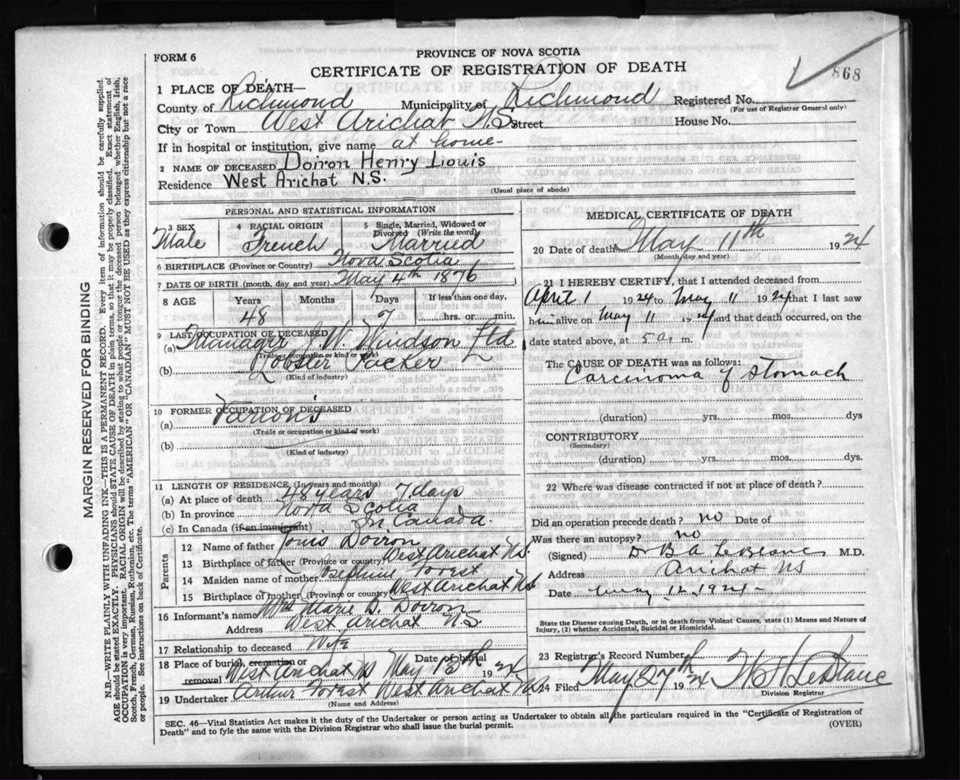 FORM 6
PROVINCE OF NOVA SCOTIA
CERTIFICATE OF REGISTRATION OF DEATH
868
1 PLACE OF DEATH—
County of Richmond Municipality of Richmond Registered No.
(For use of Registrar General only)
City or Town West Arichat N.S. Street House No.
If in hospital or institution, give name at home-
2 NAME OF DECEASED Doiron Henry Louis
Residence West Arichat N.S.
(Usual place of abode)
PERSONAL AND STATISTICAL INFORMATION
3 SEX 4 RACIAL ORIGIN 5 Single, Married, Widowed or Divorced (Write the word)
Male French Married
6 BIRTHPLACE (Province or Country) Nova Scotia
7 DATE OF BIRTH (month, day and year) May 4th 1876
8 AGE Years Months Days If less than one day,
48 7 hrs. or min.
9 LAST OCCUPATION OF DECEASED
(a) Manager J.W. Windson Ltd
(Trade or occupation or kind of work)
(b) Lobster Packer
(Kind of industry)
10 FORMER OCCUPATION OF DECEASED
(a) Various
(Trade or occupation or kind of work)
(b)
(Kind of industry)
11 LENGTH OF RESIDENCE (In years and months)
(a) At place of death 48 years 7 days
(b) In province Nova Scotia
(c) In Canada (if an immigrant) In Canada.
Parents
12 Name of father Louis Doiron
13 Birthplace of father (Province or country) West Arichat N.S.
14 Maiden name of mother Josephine Forest
15 Birthplace of mother (Province or country) West Arichat N.S.
16 Informant's name Mrs Marie D. Doiron
Address West Arichat N.S.
17 Relationship to deceased Wife
18 Place of burial, cremation or removal West Arichat N.S. Date of burial May 13th 1924
19 Undertaker Arthur Forest West Arichat N.S.
(Name and Address)
MEDICAL CERTIFICATE OF DEATH
20 Date of death May 11th 1924
(Month, day and year)
21 I HEREBY CERTIFY, that I attended deceased from
April 1 1924 to May 11 1924 that I last saw
him alive on May 11 1924 and that death occurred, on the
date stated above, at 5 a. m.
The CAUSE OF DEATH was as follows:
Carcinoma of Stomach
(duration) yrs. mos. dys
CONTRIBUTORY
(Secondary)
(duration) yrs. mos. dys.
22 Where was disease contracted if not at place of death?
Did an operation precede death? no Date of
Was there an autopsy? no
(Signed) Dr B A LeBlanc M.D.
Address Arichat N.S
Date May 12, 1924-
State the Disease causing Death, or in death from Violent Causes, state (1) Means and Nature of
Injury, (2) whether Accidental, Suicidal or Homicidal.
23 Registrar's Record Number
24 Filed May 27th 1924 H. H. LeBlanc
Division Registrar
SEC. 46—Vital Statistics Act makes it the duty of the Undertaker or person acting as Undertaker to obtain all the particulars required in the "Certificate of Registration of
Death" and to fyle the same with the Division Registrar who shall issue the burial permit.
(OVER)
MARGIN RESERVED FOR BINDING
N.B.—WRITE PLAINLY WITH UNFADING INK—THIS IS A PERMANENT RECORD. Every item of information should be carefully supplied.
AGE should be stated EXACTLY. PHYSICIANS should STATE CAUSE OF DEATH in plain terms, so that it may be properly classified. Exact statement of
OCCUPATION is very important. RACIAL ORIGIN will be described by stating to what people or tongue the deceased person belonged whether English, Irish,
Scotch, French, German, Russian, Ruthenian, etc. The terms "AMERICAN" OR "CANADIAN" MUST NOT BE USED as they express citizenship but not a race
or people. See instructions on back of Certificate.